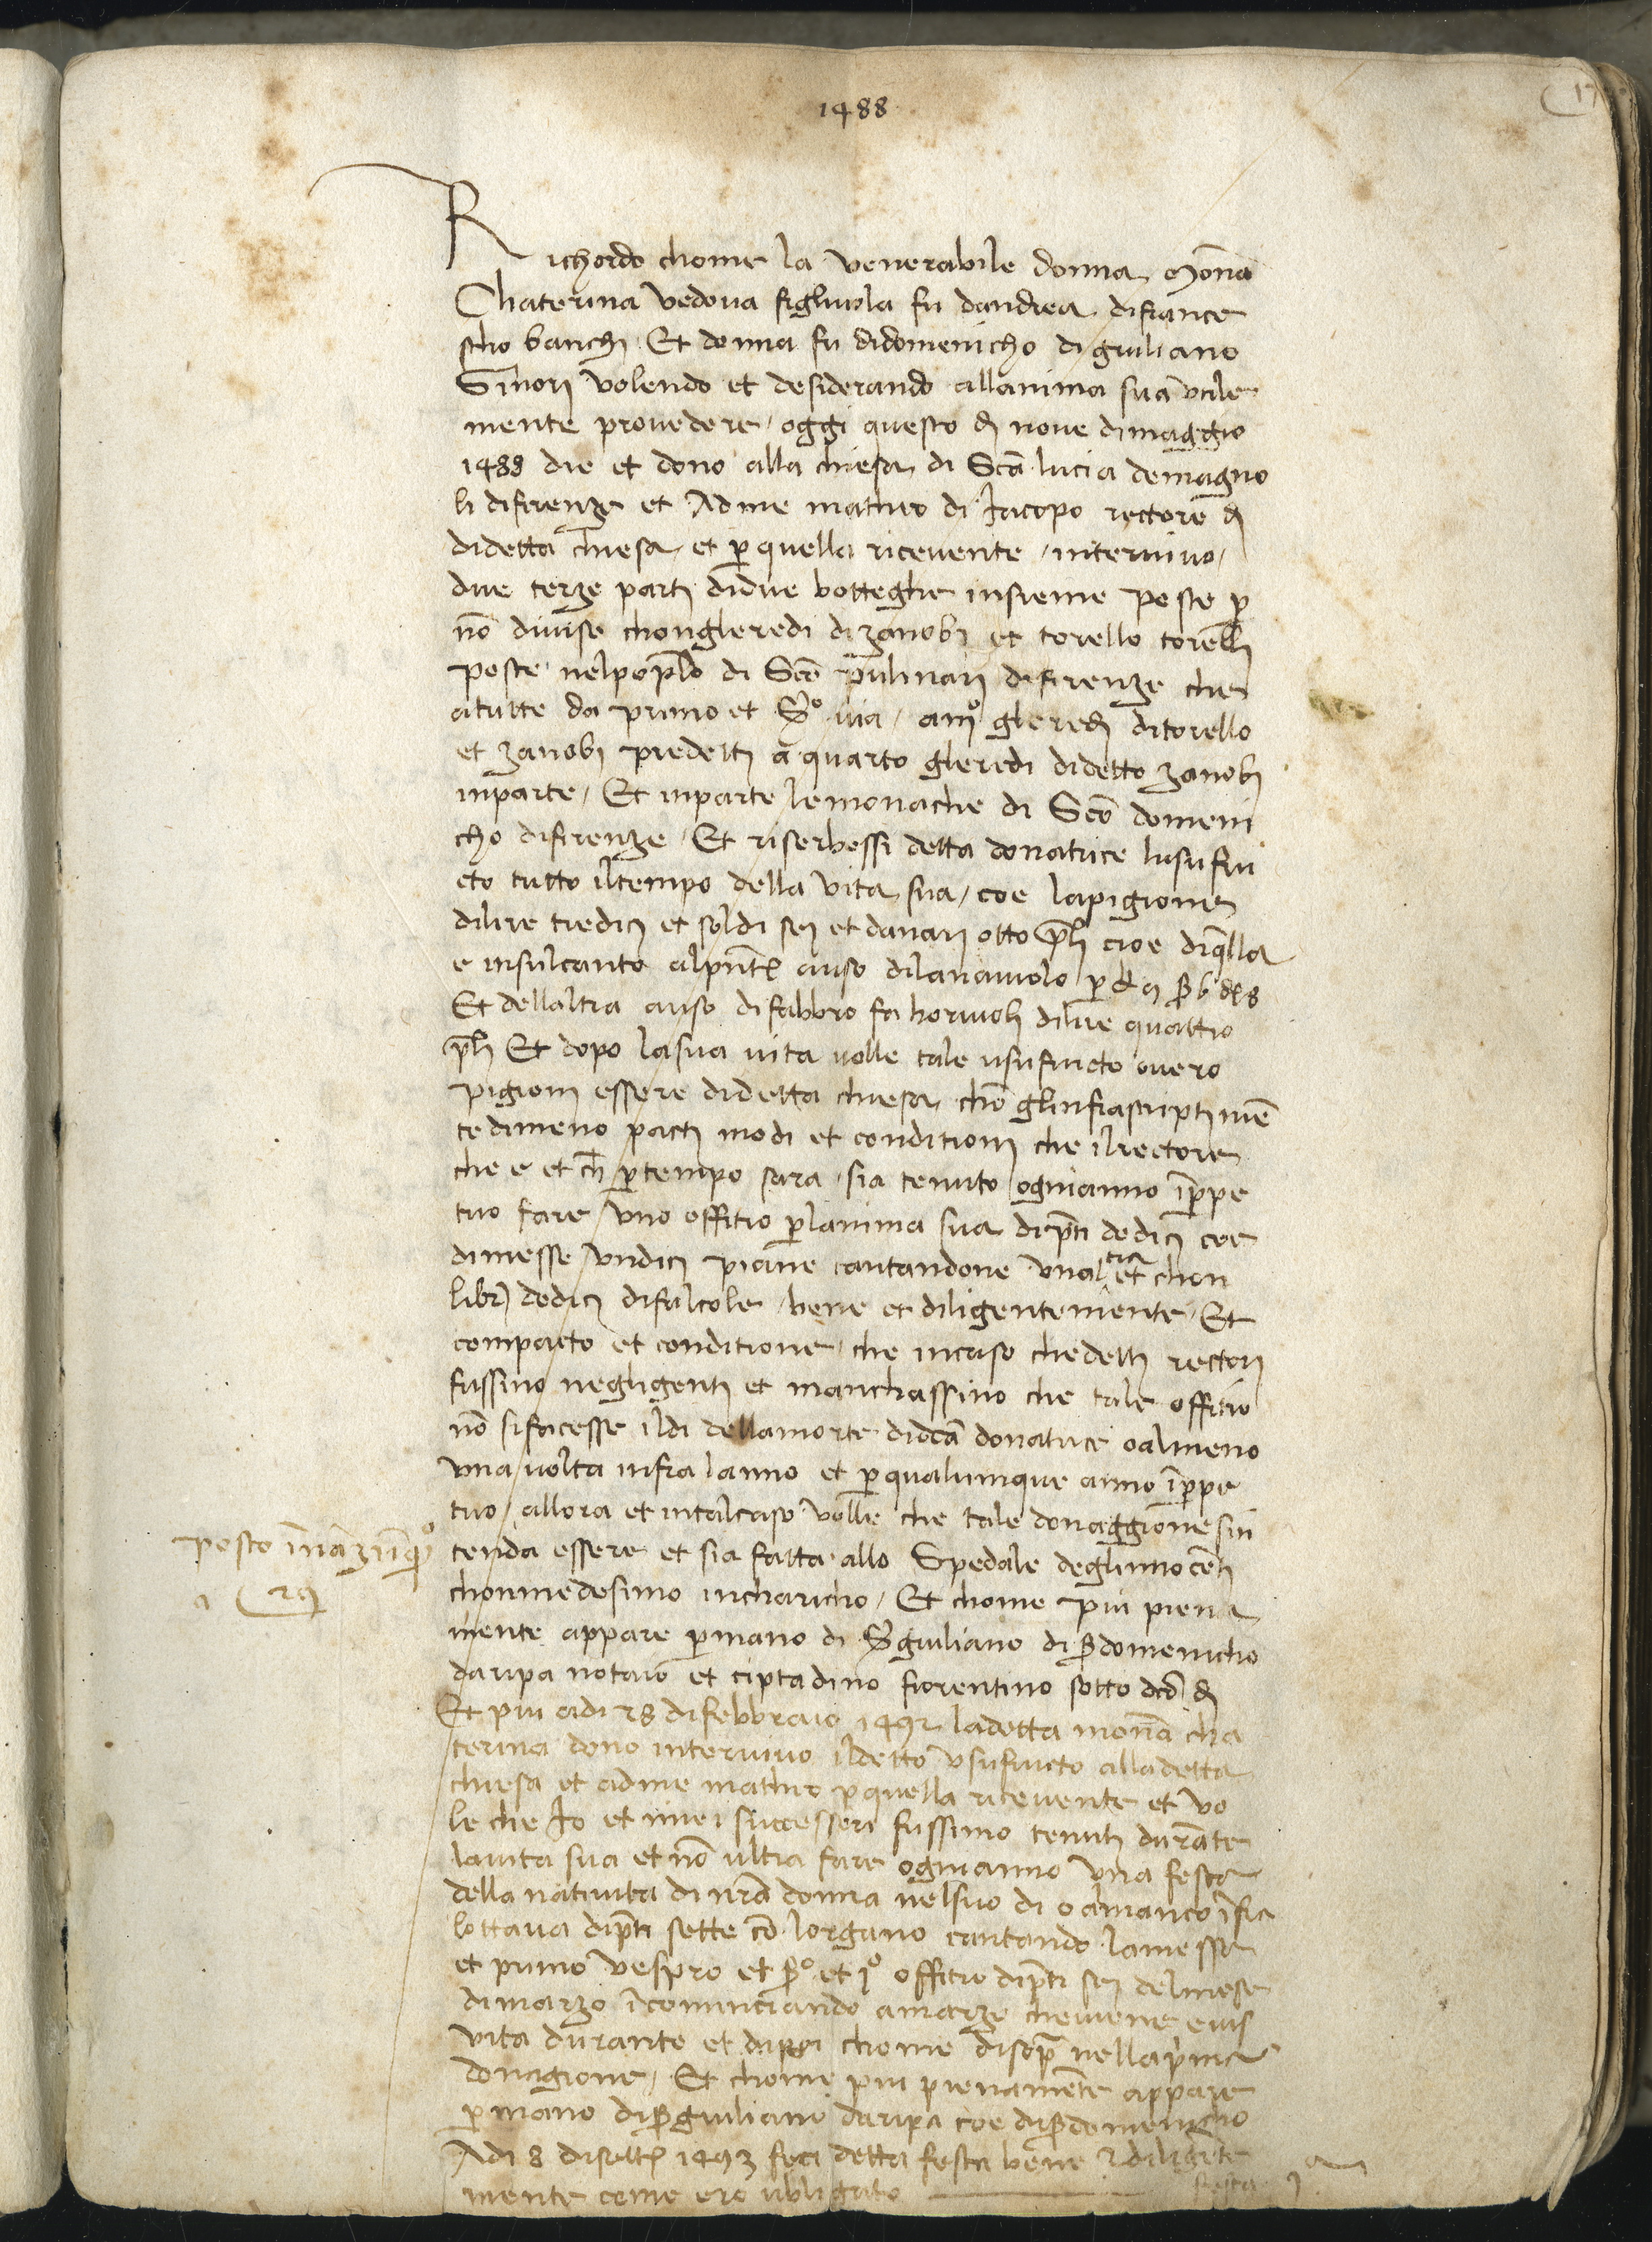 1488
17
Richordo chome la venerabile donna monā
Chaterina vedova figliuola fu dandrea difrance
scho banchi Et donna fu didomenicho di giuliano
Sinori volendo et desiderando allanima sua utile
mente provedere oggi questo di nove dimaggio
1488 die et dono alla chiesa di Scā lucia demagno
li difirenze et Adme matheo di Jacopo rectore
didetta chiesa et p quella ricevente intervivo
due terze parti didue botteghe insieme poste p
nō divise chongleredi di zanobi et torello torelli
poste nelpoplo di Scō pulinari difirenze che
atutte da primo et So via a mo gleredi ditorello
et zanobi predetti a quarto gleredi didetto zanobi
inparte Et inparte lemonache di Scō domeni
cho difirenze Et riserbossi detta donatrice lusufru
cto tutto iltempo della vita sua coe lapigione
dilire tredici et soldi sei et danari otto plī cioe diqlla
e insulcanto alpnte auso dilanaiuolo
Et dellaltra auso di fabbro fa horiuoli dilire quattro
plī Et dopo lasua vita volle tale usufructo overo
pigioni essere didetta chiesa chō glinfrascripti niē
tedimeno pacti modi et conditioni che ilrectore
che e et ch ptempo sara sia tenuto ognianno īppe
tuo fare uno offitio planima sua dipti dodici coe
dimesse undici piane cantandone unal tra et chon
libr dodici difalcole bene et diligentemente Et
compacto et conditione che incaso chedetti rectori
fussino negligenti et manchassino che tale offitio
nō sifacesse ildi dellamorte didcā donatrice oalmeno
una volta infra lanno et pqualunque anno īppe
tuo allora et intalcaso volle che tale donaggione sin
tenda essere et sia fatta allo Spedale deglinnocēti
chonmedesimo inchariccho Et chome piu piena
mente appare pmano di S giuliano di S domenicho
daripa notaio et ciptadino fiorentino sotto dcō di
posto
a 29
Et piu adi 28 difebbraio 1492 ladetta monā cha
terina dono intervivo ildetto usufructo alladetta
chiesa et adme matheo pquella ricevente et vo
le che Io et miei successori fussimo tenuti durāte
lavita sua et nō ultra fare ognianno una festa
della nativita di nrā donna nelsuo di oalmanco īfra
lottava dipti sette cō lorgano cantando lamessa
et primo vespro et So et jo offitio dipti sei delmese
dimarzo īcominciando amarzo cheviene eius
vita durante et dipoi chome disopra nellaprima
donagione Et chome piu pienamēte appare
pmano diS giuliano daripa coe diS domenicho
Adi 8 disettē 1493 feci detta festa bene et diligēte
mente come ero ubligato festa j